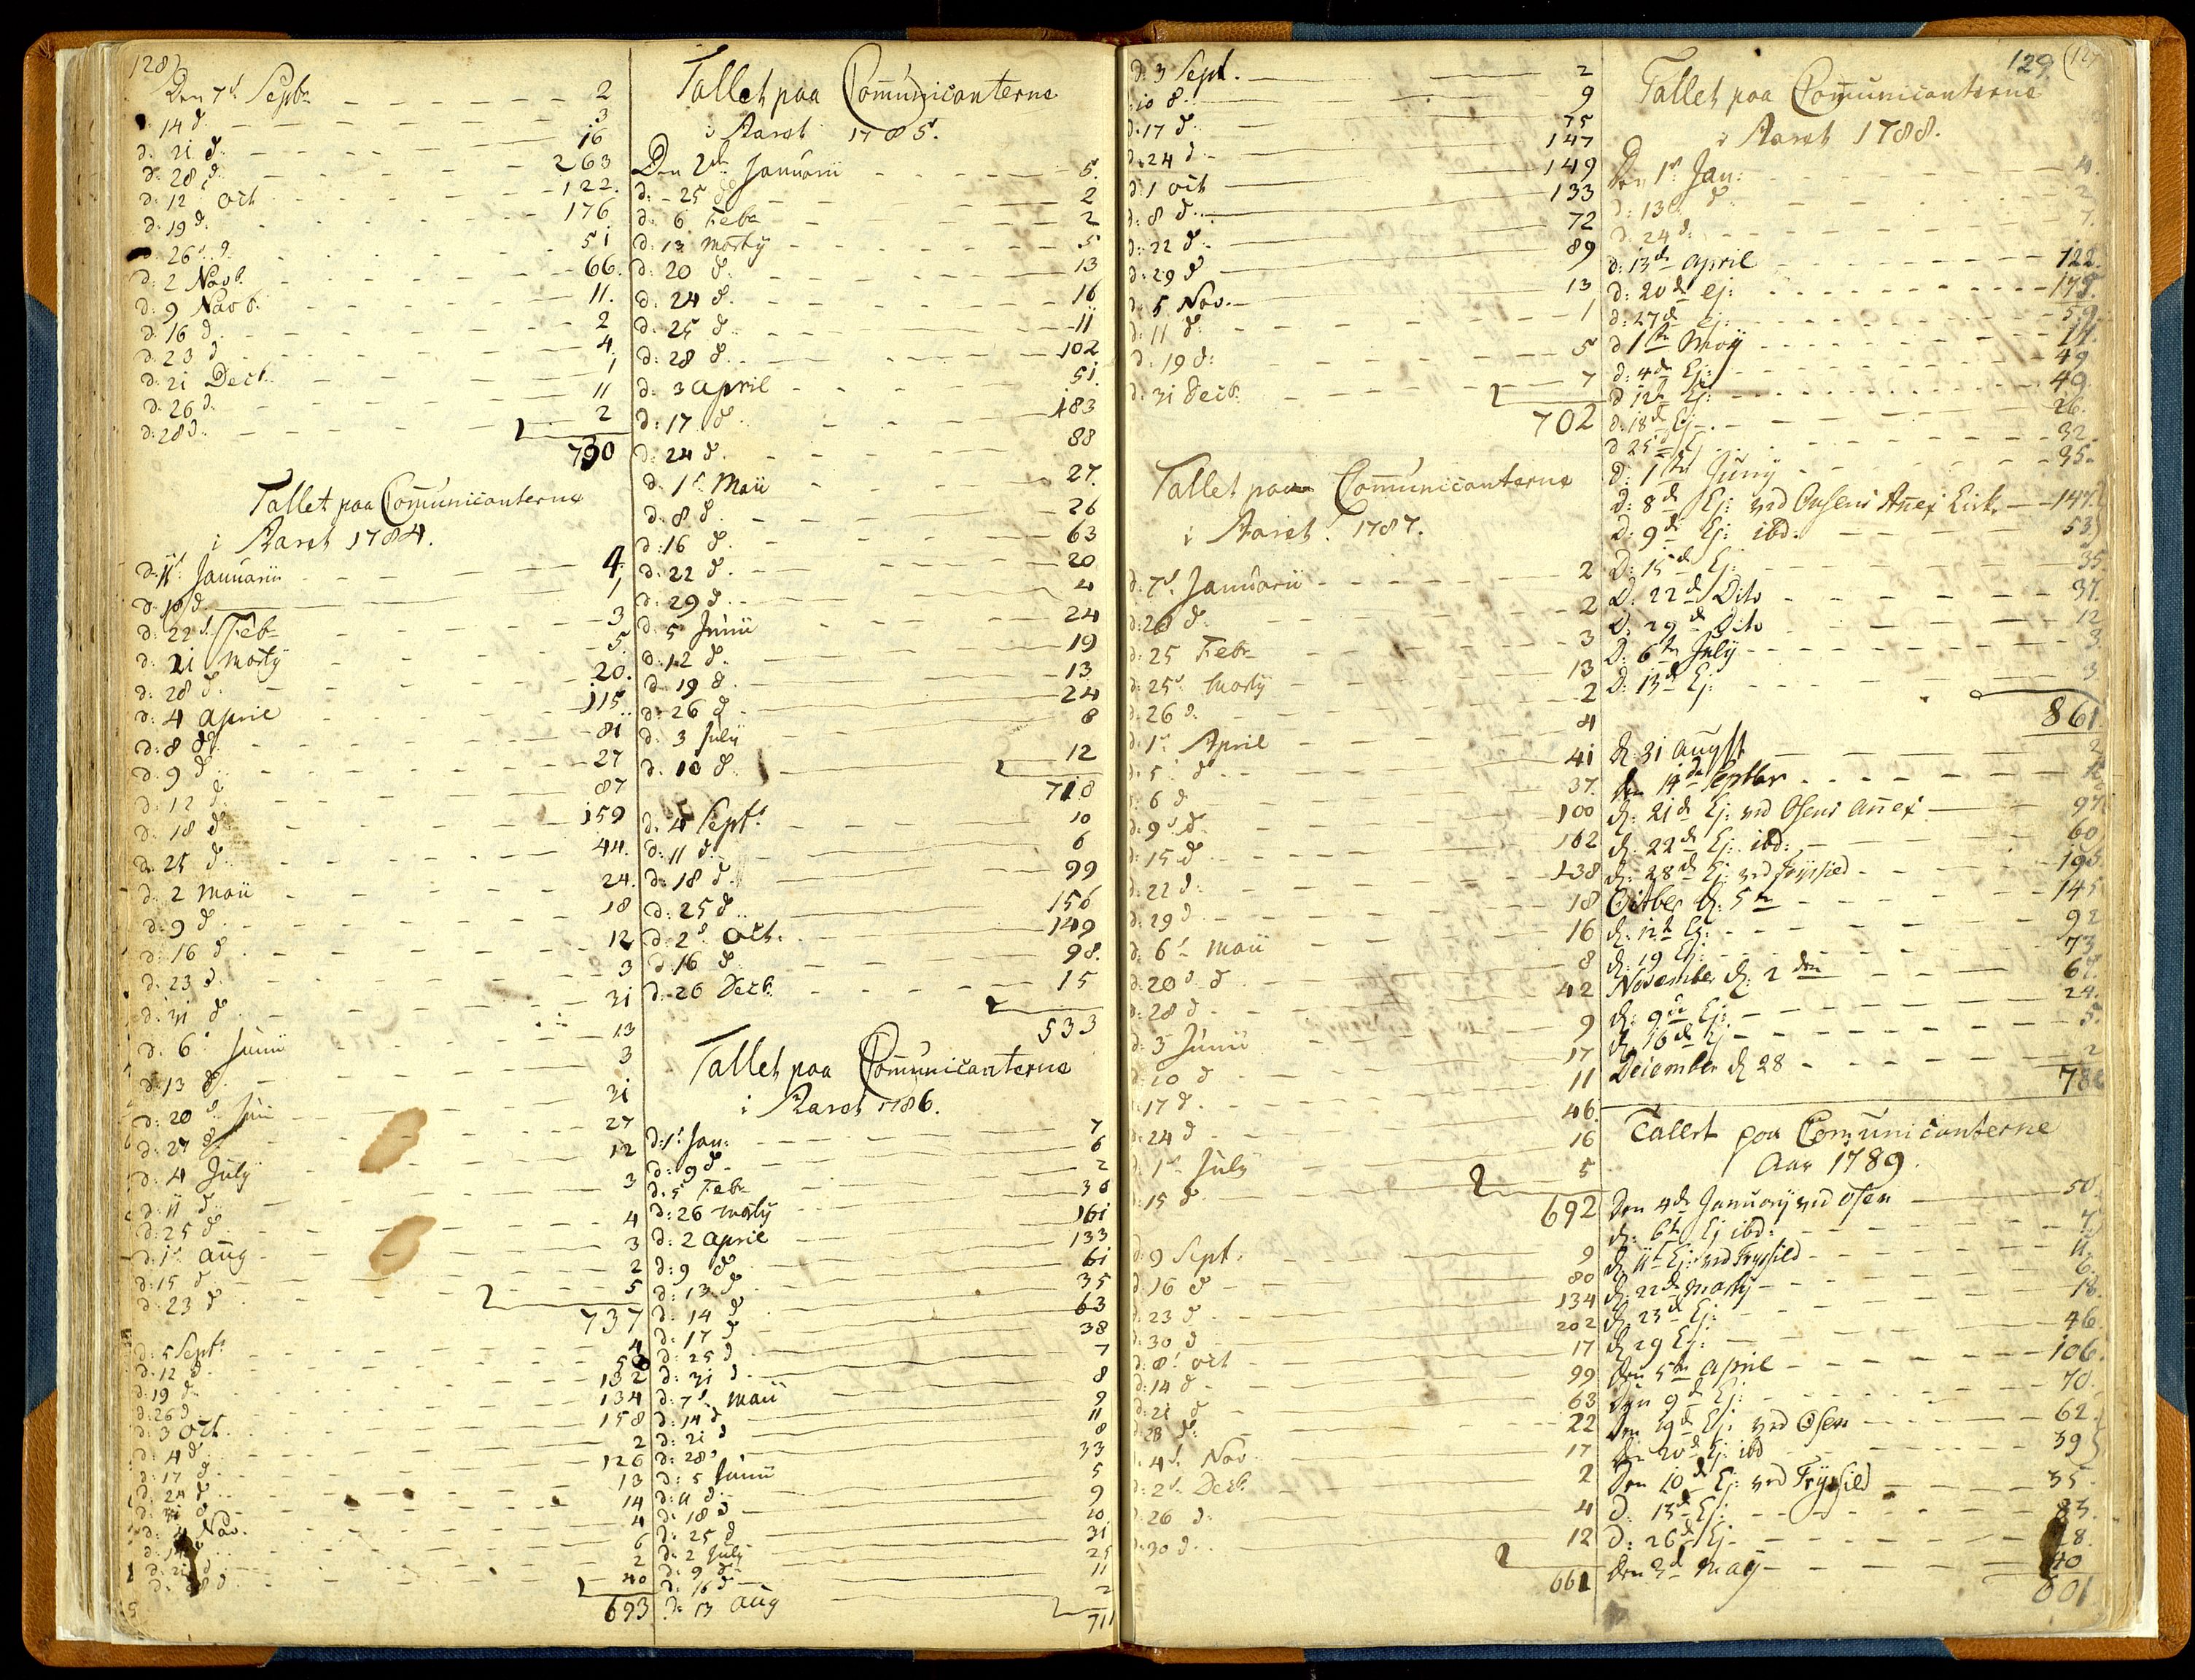 128)
Den 7d. Septr 2
d. 14 d. 3
d. 21 d. 16
d. 28 d. 263
d. 12 Oct 122.
d. 19 d. 176
d. 26 d. 51
d. 2 Novb. 66.
d. 9 Novb. 11.
d. 16 d. 2
d. 23 d 4.
d. 21 Decb. 1
d. 26 d. 11
d. 28 d. 2
730
Tallet paa Com̄unicanterne
i Aaret 1784.
d. 11t. Januarii 4.
d. 18 d. 1
d. 22d. Feb 3
d. 21 Martij 5.
d. 28 d. 20.
d. 4 April 115.
d. 8 d. 81
d. 9 d. 27
d. 12 d. 87
d. 18 d 159
d. 25 d. 44.
d. 2 Maii 24.
d. 9 d. 18
d. 16 d. 12
d. 23 d. 3
d. 31 d. 31
d. 6 Junii 13
d. 13 d. 3
d. 20 d. 31
d. 27 d. 27
d. 4 July 12
d. 11 d. 3
d. 25 d. 4
d. 1t. Aug 3
d. 15 d. 2
d. 23 d 5
737
d. 5 Sept. 4
d. 12 d.
d. 19 d. 132
d. 26 d. 134
d. 3 Oct. 158
d. 4 d. 2
d. 17 d. 126
d. 24 d. 13
d. 31 d. 14
Nov. 4
6
2
40
693
Tallet paa Com̄unicanterne
i Aaret 1785.
Den 2dn Januarii 5.
d. 25 d 2
d. 6 Feb 2
d. 13 Martij 5
d. 20 d. 13
d. 24 d. 16
d. 25 d. 11
d. 28 d. 102
d. 3 April 51.
d. 17 d. 183
d. 24 d. 88
d. 1t. Maii 27.
d. 8 d. 26
d. 16 d. 63
d. 22 d. 20
d. 29 d. 4
d. 5 Junii 24
d. 12 d. 19
d. 19 d. 13
d. 26 d. 24
d. 3 July 8
d. 10 d. 12
718
d. 4 Sept. 10
d. 11 d. 6
d. 18 d. 99
d. 25 d. 156
d. 2d. Oct. 149
d. 16 d. 98.
d. 26 Decb. 15
533
Tallet paa Com̄unicanterne
i Aaret 1786.
d. 1t. Jan: 7
d. 9 d. 6
d. 5 Feb 2
d. 26 Martij 36
d. 2 April 161
d. 9 d. 133
d. 13 d. 61
d. 14 d. 35
d. 17 d. 63
d. 25 d. 38
d. 31 d. 7
d. 7d. Maii 8
d. 14 d 9
d. 21 d 11
d. 28 d 8
d. 5 Junii 33
d. 11 d. 5
d. 18 d 9
d. 25 d 20
d. 2 July 31
d. 9 d. 25
d. 16 d 11
d. 13 Aug 2
711
d. 3 Sept. 2
10 8. 9
d. 17 d. 75
d. 24 d. 147
d. 1 Oct 149
d. 8 d. 133
d. 22 d. 72
d. 29 d 89
d. 5 Nov. 13
d. 11 d. 1
d. 19 d: 5
d. 31 Decb. 7
702
Tallet paa Com̄unicanterne
i Aaret. 1787.
d. 7d. Januarii 2
d. 20 d. 2
d. 25 Feb 3
d. 25d. Martij 13
d. 26 d. 2
d. 1t. April 4
d. 5 d. 41
d. 6 d 37.
d. 9 d. 100
d. 15 d. 162
d. 22 d. 138
d. 29 d. 18
d. 6t. Maii 16
d. 20 d. 8
d. 28 d. 42
d. 3 Junii 9
d. 10 d 17
d. 17 d. 11
d. 24 d. 46
d. 1t. July 16
d. 15 d 5
692
d. 9 Sept. 9
d. 16 d 80
d. 23 d 134
d. 30 d 202
d. 8t. Oct 17
d. 14 d 99
d. 21 d 63
d. 28 d. 22
d. 4d. Nov. 17
d. 2d. Decb. 2
d. 26 d. 4
d. 30 d. 12
661
129. (127
Tallet paa Com̄unicanterne
i Aaret 1788.
Den 1t. Jan: 4.
d: 13 d 2
d. 24 d. 7.
d: 13de April 122.
d: 20de Ej: 175.
d: 27de Ej: 59.
d 1ste Maij 11.
d: 4de Ej: 49
d 12te Ej: 49.
d. 18de Ej 26.
d 25de Ej 32
d: 1ste Junij 35.
d: 8de Ej: ved Annex Kirke 147.
d: 9de Ej: ibd. 53
d: 15de Ej: 35.
d: 22de Dito 37.
d: 29de Dito 12
d: 6te July 3
d: 13de Ej: 3
861.
d. 31 Augst 2
den 14de Septbr
d. 21de Ej: ved Osens Annex 97.
d. 22de Ej. ibd: 60
d: 28de Ej: ved Trÿssild
Octbr d: 5te 145
d. 12te Ej: 92
d. 19 Ej: 73
November d. 2den
d: 9de Ej: 24.
d. 16de Ej 5.
December d. 28 2
Tallet paa Com̄unicanterne
Aar 1789.
Den 4de January ved Osen 50.
d: 6te Ej ibd: 7.
d. 11te Ej: ved Tryssild 11.
d. 22de Martij 6.
d. 23de Ej: 18.
d. 29 Ej: 46.
Den 5te April 106.
Den 9de Ej: 70.
Den 19de Ej: ved Osen 62.
Den 20de Ej ibd 39
Den 10de Ej: ved Trÿssild 35.
d: 13de Ej: 83.
d: 26de Ej 28.
Den 3de Maij 40
601